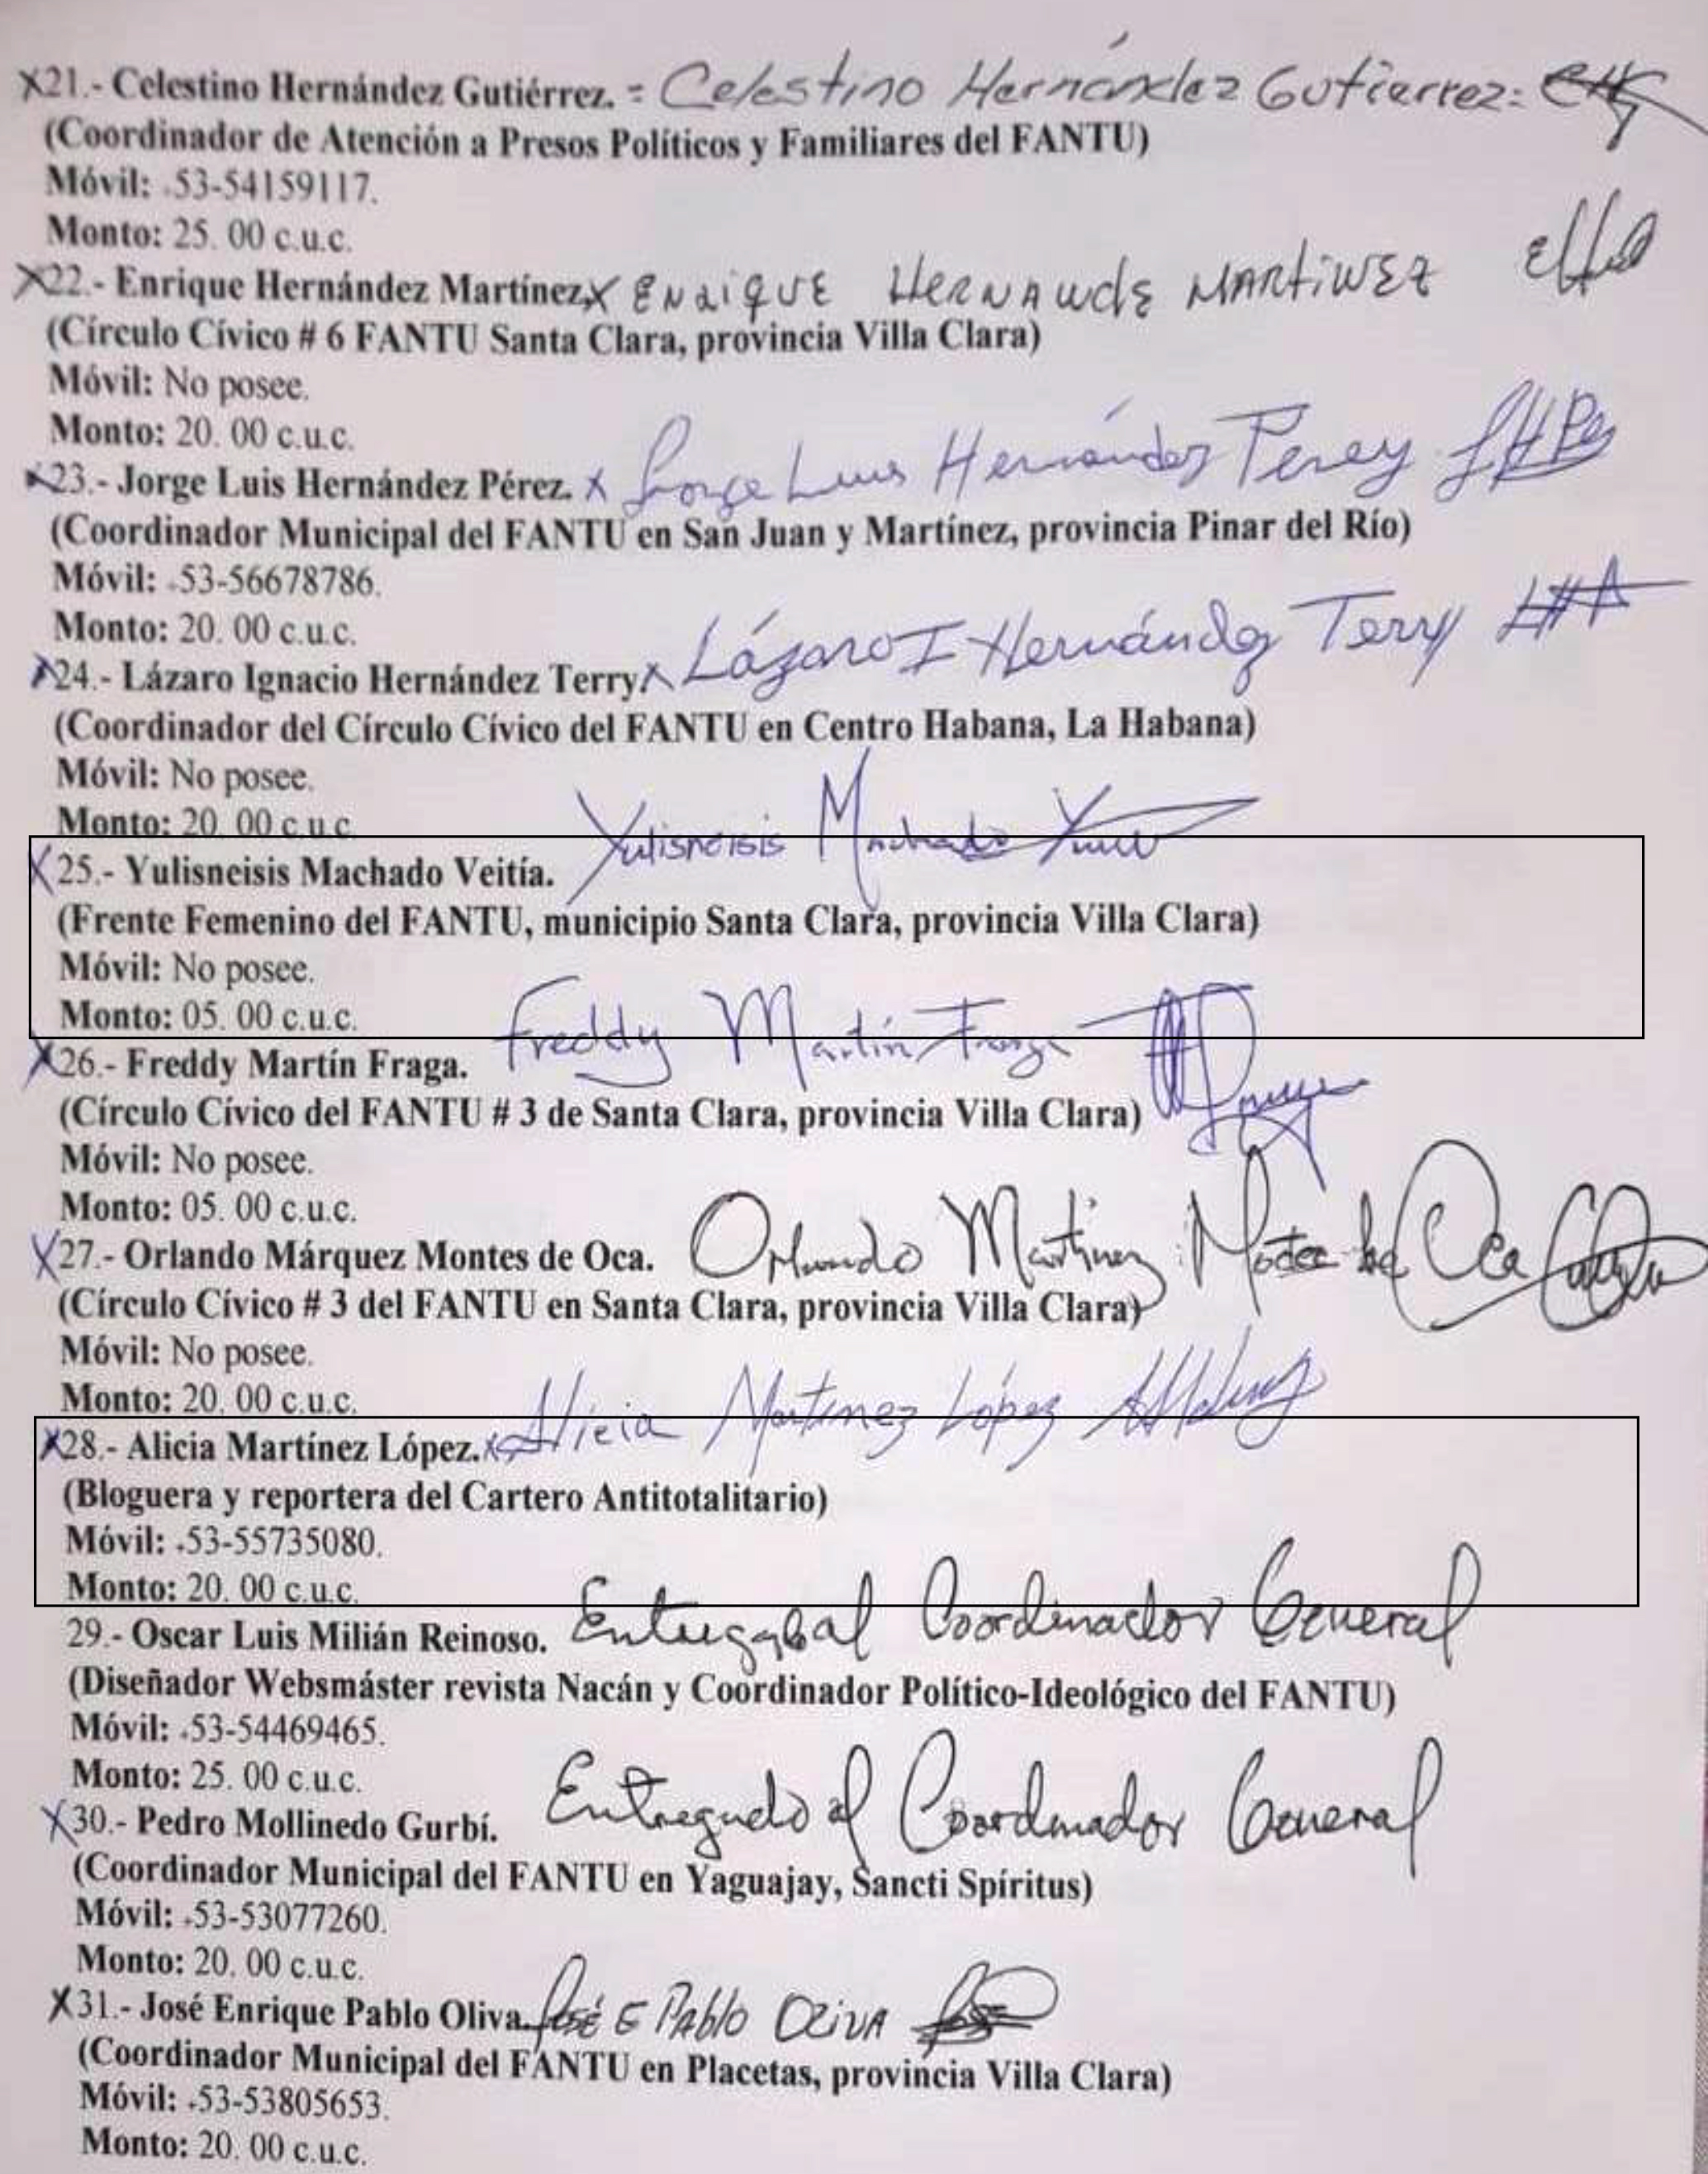 X21.- Celestino Hernández Gutiérrez. = Celestino Hernández Gutierrez:
(Coordinador de Atención a Presos Políticos y Familiares del FANTU)
Móvil: +53-54159117.
Monto: 25. 00 c.u.c.
X22.- Enrique Hernández Martínez X ENRiQUE HERNANdE MARTiNEZ
(Círculo Cívico # 6 FANTU Santa Clara, provincia Villa Clara)
Móvil: No posee.
Monto: 20. 00 c.u.c.
X23.- Jorge Luis Hernández Pérez. X Jorge Luis Hernández Perez JHP
(Coordinador Municipal del FANTU en San Juan y Martínez, provincia Pinar del Río)
Móvil: +53-56678786.
Monto: 20. 00 c.u.c.
X24.- Lázaro Ignacio Hernández Terry. X Lázaro I Hernández Terry
(Coordinador del Círculo Cívico del FANTU en Centro Habana, La Habana)
Móvil: No posee.
Monto: 20. 00 c.u.c.
X25.- Yulisneisis Machado Veitía. Yulisneisis Machado
(Frente Femenino del FANTU, municipio Santa Clara, provincia Villa Clara)
Móvil: No posee.
Monto: 05. 00 c.u.c.
X26.- Freddy Martín Fraga. Freddy Martín Fraga
(Círculo Cívico del FANTU # 3 de Santa Clara, provincia Villa Clara)
Móvil: No posee.
Monto: 05. 00 c.u.c.
X27.- Orlando Márquez Montes de Oca. Orlando Martinez Montes de Oca
(Círculo Cívico # 3 del FANTU en Santa Clara, provincia Villa Clara)
Móvil: No posee.
Monto: 20. 00 c.u.c.
X28.- Alicia Martínez López. X Alicia Martinez López
(Bloguera y reportera del Cartero Antitotalitario)
Móvil: +53-55735080.
Monto: 20. 00 c.u.c.
29.- Oscar Luis Milián Reinoso. Coordinador General
(Diseñador Websmáster revista Nacán y Coordinador Político-Ideológico del FANTU)
Móvil: +53-54469465.
Monto: 25. 00 c.u.c.
X30.- Pedro Mollinedo Gurbí. Entregado al Coordinador General
(Coordinador Municipal del FANTU en Yaguajay, Sancti Spíritus)
Móvil: +53-53077260.
Monto: 20. 00 c.u.c.
X31.- José Enrique Pablo Oliva. José E PAblo OLiVA
(Coordinador Municipal del FANTU en Placetas, provincia Villa Clara)
Móvil: +53-53805653.
Monto: 20. 00 c.u.c.